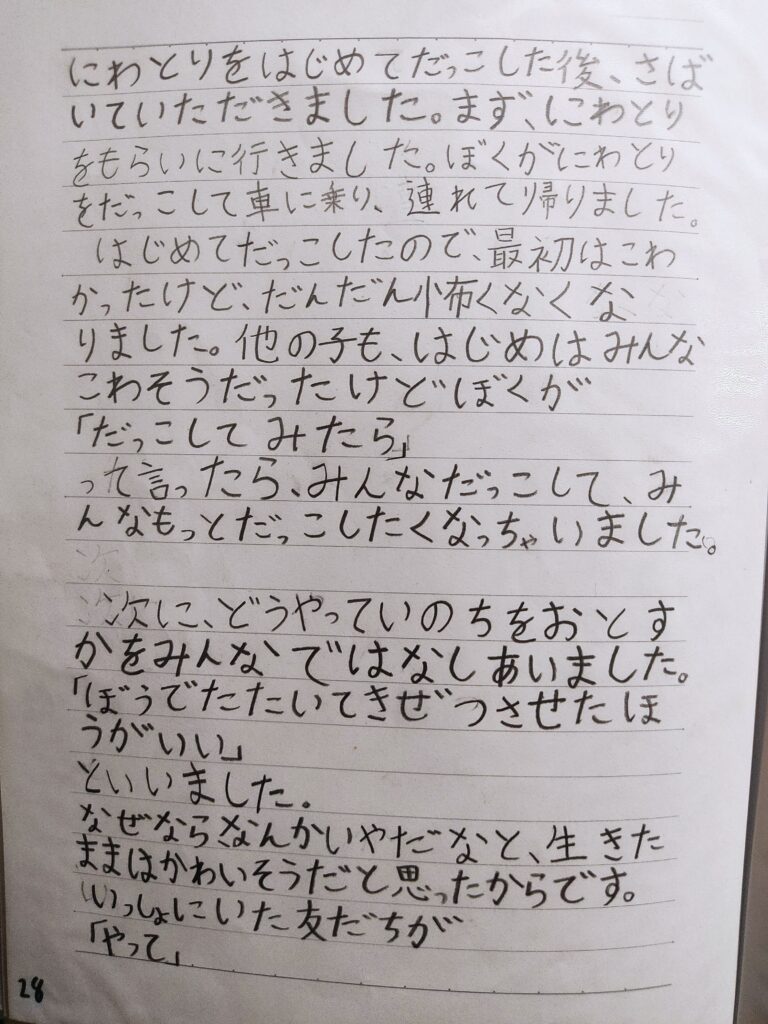 にわとりをはじめてだっこした後、さば
いていただきました。まず、にわとり
をもらいに行きました。ぼくがにわとり
をだっこして車に乗り、連れて帰りました。
はじめてだっこしたので、最初はこわ
かったけど、だんだん怖くなくな
りました。他の子も、はじめはみんな
こわそうだったけどぼくが
「だっこしてみたら」
って言ったら、みんなだっこして、み
んなもっとだっこしたくなっちゃいました。
次に、どうやっていのちをおとす
かをみんなではなしあいました。
「ぼうでたたいてきぜつさせたほ
うがいい」
といいました.
なぜなら、なんかいやだなと、生きた
ままはかわいそうだと思ったからです。
いっしょにいた友だちが
「やって」
28